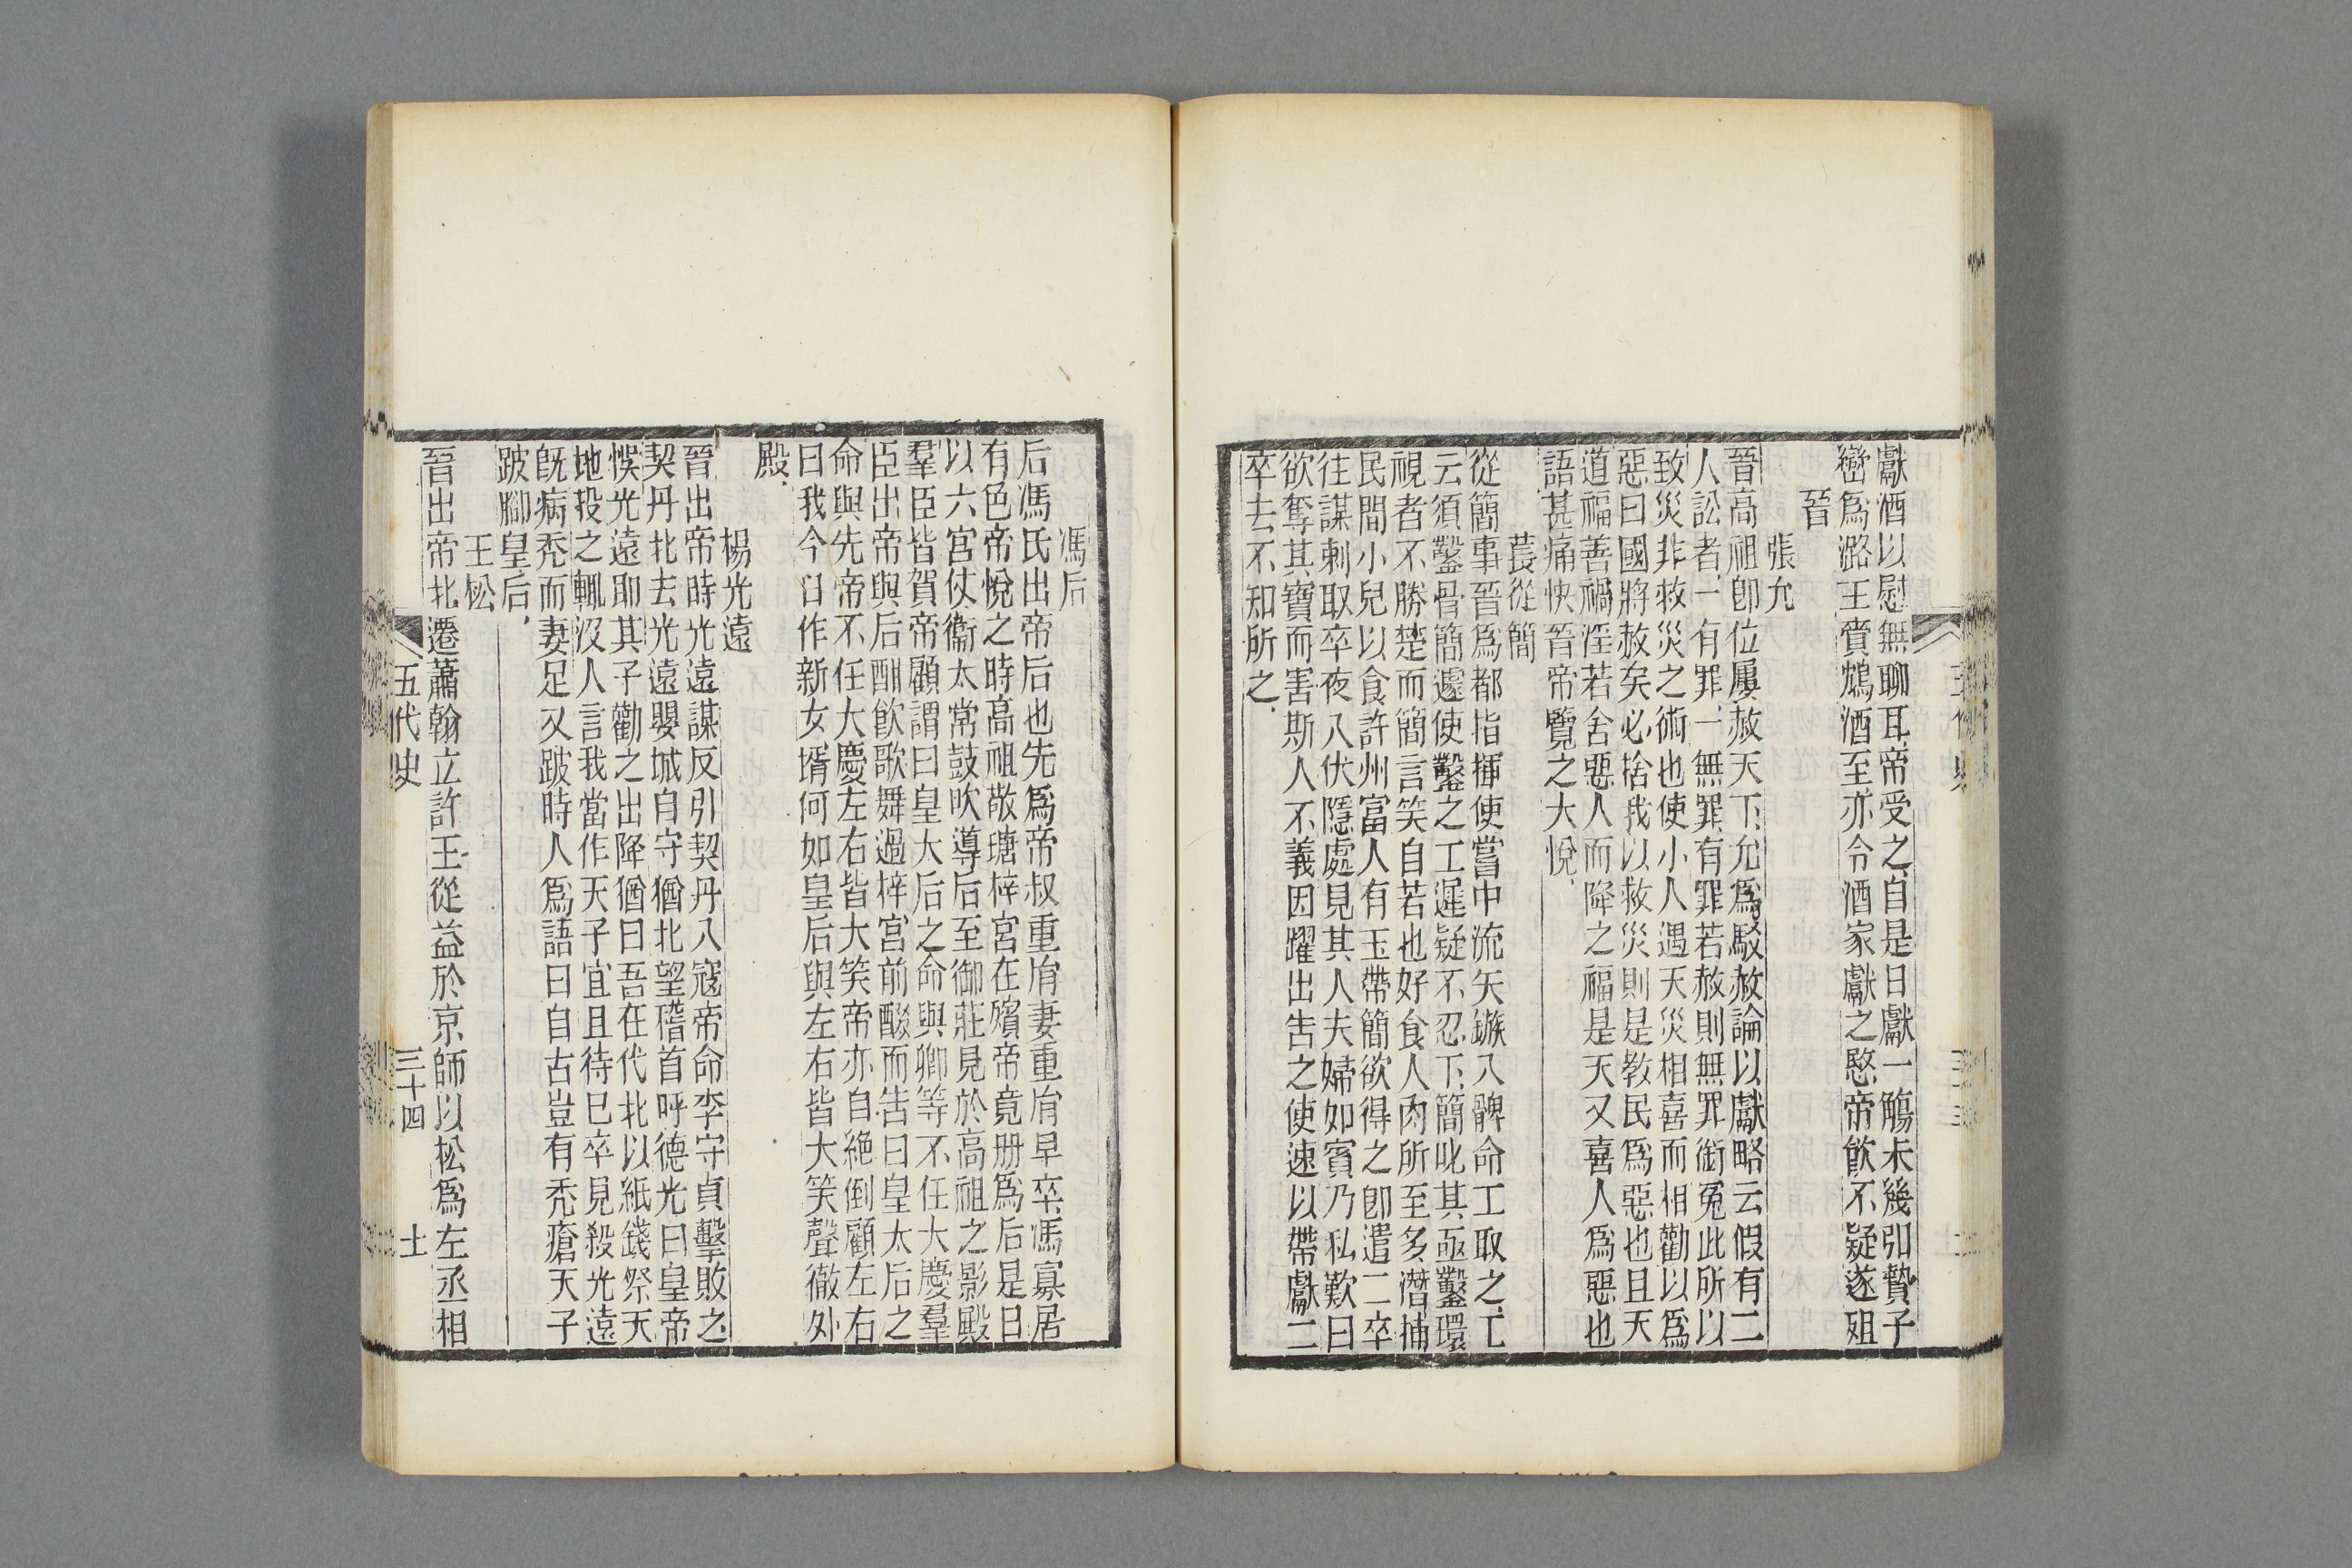 獻酒以慰無聊耳帝受之自是日獻一觴未幾引贄子
巒爲潞王賷鴆酒至亦令酒家獻之愍帝飮不疑遂殂
晉
張允
晉高祖卽位屢赦天下允爲駁赦論以獻略云假有二
人訟者一有罪一無罪有罪若赦則無罪銜冤此所以
致災非救災之術也使小人遇天災相喜而相勸以爲
惡曰國將赦矣必捨我以救災則是教民爲惡也且天
道福善禍淫若舍惡人而降之福是天又喜人爲惡也
語甚痛快晉帝覽之大悅
萇從簡
從簡事晉爲都指揮使嘗中流矢鏃入髀命工取之工
云須鑿骨簡遽使鑿之工遲疑不忍下簡叱其亟鑿環
視者不勝楚而簡言笑自若也好食人肉所至多潛捕
民間小兒以食許州富人有玉帶簡欲得之卽遣二卒
往謀刺取卒夜入伏隱處見其人夫婦如賓乃私歎曰
欲奪其寶而害斯人不義因躍出吿之使速以帶獻二
卒去不知所之
馮后
后馮氏出帝后也先爲帝叔重胤妻重胤早卒馮寡居
有色帝悅之時高祖敬瑭梓宮在殯帝竟册爲后是日
以六宮仗衞太常鼓吹導后至御莊見於高祖之影殿
羣臣皆賀帝顧謂曰皇太后之命與卿等不任大慶羣
臣出帝與后酣飮歌舞過梓宮前醊而吿曰皇太后之
命與先帝不任大慶左右皆大笑帝亦自絶倒顧左右
曰我今日作新女壻何如皇后與左右皆大笑聲徹外
殿
楊光遠
晉出帝時光遠謀反引契丹入寇帝命李守貞擊敗之
契丹北去光遠嬰城自守猶北望稽首呼德光曰皇帝
悞光遠耶其子勸之出降猶曰吾在代北以紙錢祭天
地投之輒沒人言我當作天子宜且待已卒見殺光遠
旣病禿而妻足又跛時人爲語曰自古豈有禿瘡天子
跛腳皇后
王松
晉出帝北遷蕭翰立許王從益於京師以松爲左丞相
五代史
三十四
士